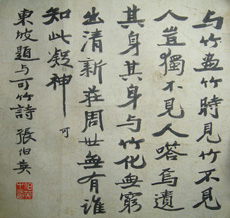 与竹畫竹時見竹不見
人豈獨不見人嗒焉遺
其身其身与竹化無窮
出清新莊周世無有誰
知此凝神 可
東坡題与可竹詩 張伯英